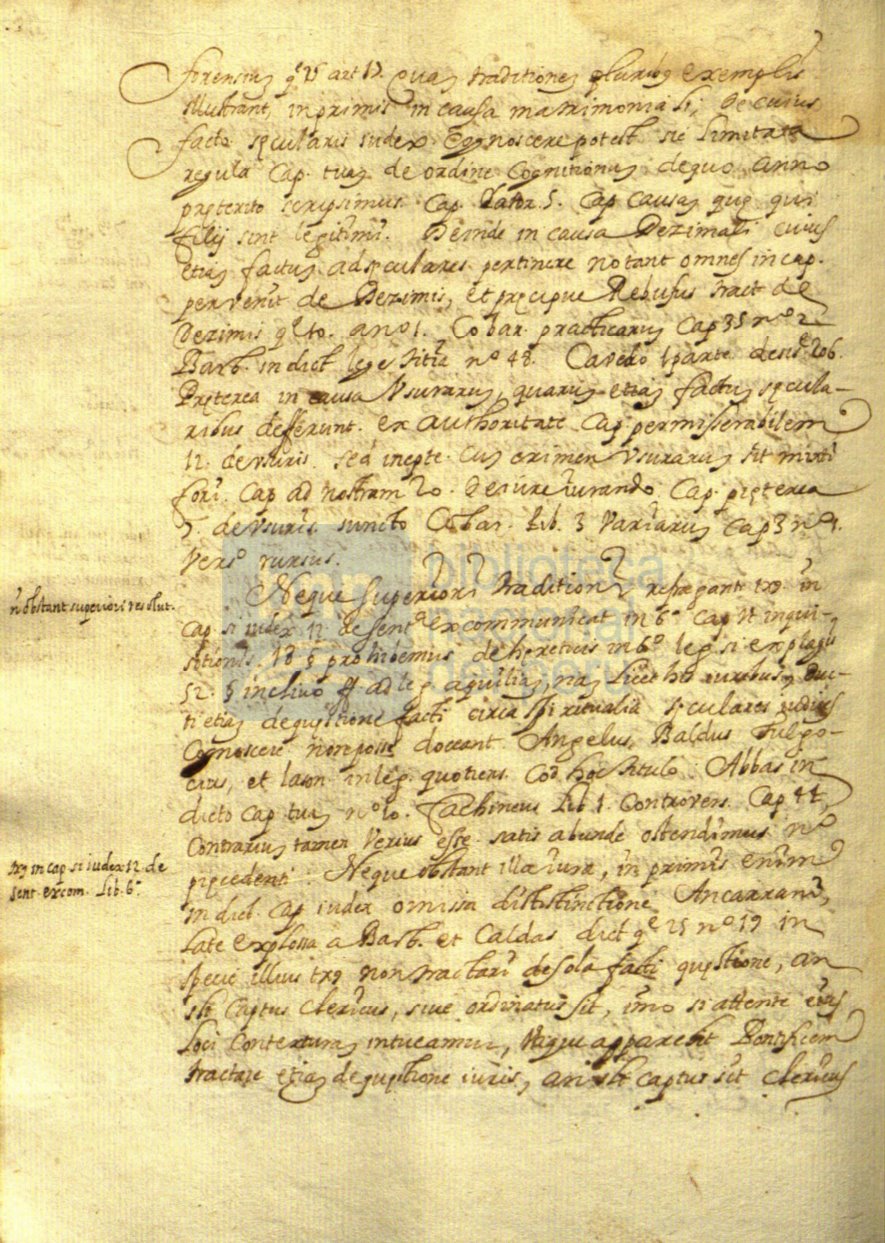 forensiu q͂ 25 art 17. Quas traditiones pluribus exemplis
illustrant, inprimis in causa matrimoniali, de cuius
facto sęcularis iudex cognoscere potest sic limitata
regula Cap. tuas de ordine Cognitionus dequo anno
pręterito scripsimus Cap. Lator. 5. Cap causas quę qui
filij sint legitimi. Deinde in causa Dezimali cuius
etias factus adsęculares pertinere notant omnes in cap.
pervenit de Dezimis, et pręcipue Rebufus tract de
Dezimis q͂ 10. a nº 1. Cobar. practicarus Cap 35 nº 2
Barb. in dict lege titia nº 48. Cavedo 1 parte decis͂ 206.
Pręterea in causa Vsurarus, quarus etias factus sęcula-
ribus defferunt. ex authoritate Cap. permisserabilem
12. de vsuris. sed inepte. Cus crimen vsurarus sit mixti
fori. Cap ad nostram 20. de iureiurando. Cap. pręterea
7. de vsuris. iuncto Cobar. lib. 3 Variarus Cap 3 nº 1.
Versº rursus.
Neque superiori traditioni refragant tx9 in
n obstant superiori resolut.
Cap si iudex 12 de sentª excommunicat in 6º Cap Vt inqui-
sitionis 18 § prohibemus de hęreticis in 6º leg. si explagis
52. § inclivo ff ad leg aquilias, nas licet his iuribus duc-
ti etias de quęstione facti circa spiritualia sęculares iudices
Cognoscere non posse doceant Angelus, Baldus Fulgo-
cius, et Iason in leg. quotiens. Cod hoc titulo. Abbas in
dicto Cap tuas nº 10. Fachineus lib 1. Controvers. Cap 44,
Contrarius tamen Verius esse satis abunde ostendimus nº
pręcedenti. Neque obstant illa iura, in primis enim
tx9 in cap si iudex 12. de
sent. excom. lib. 6º
in dict. Cap iudex omissa distinctione Ancarrani,
late explossa a Barb. et Caldas dict q͂ 25 nº 19 in
specie illius tx9 non tractari de sola facti quęstione, an
sit Captus Clericus, sive ordinatus sit, imo si attente eius
loci Contexturas intueamur, utique apparebit Pontificem
tractare etias de quęstione iuris, an sit captus sit Clericus